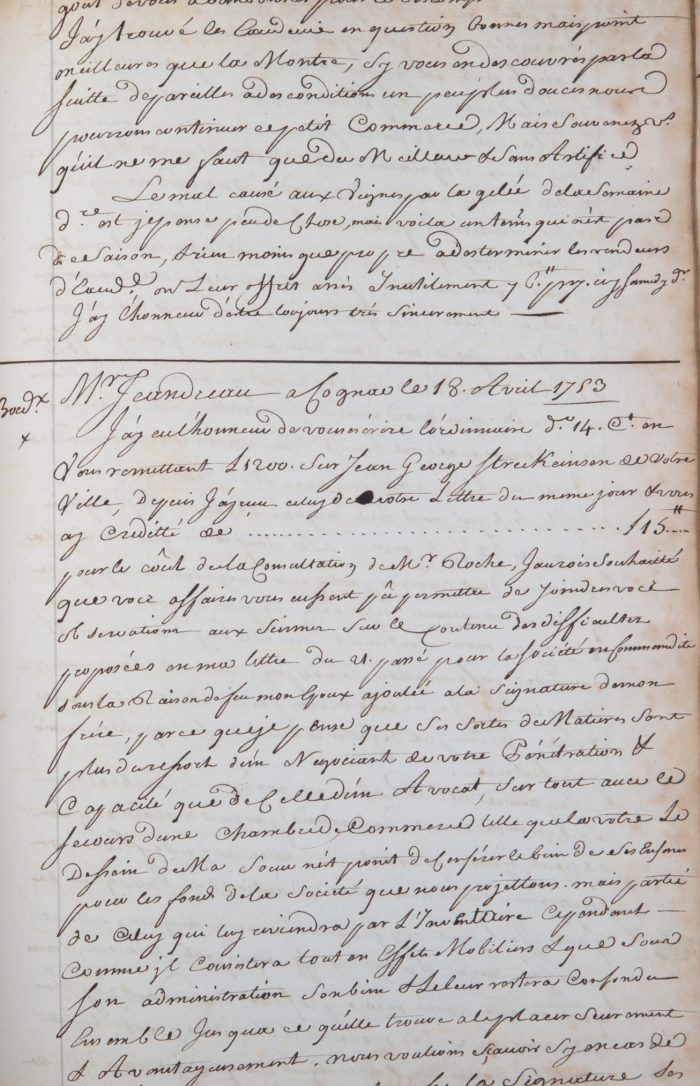 J'ay trouvé les Eaudevie en question bonnes mais point
meilleures que la Montre, sy vous en descouvrés par la
suitte de pareilles a des conditions un peu plus douces nous
pourrons continuer ce petit Commerce, Mais Souvenez vs.
qu'il ne me faut que du Meilleur & Sans Artifice
Le mal causé aux Vignes par la gelée de la Semaine
dre. est je pense peu de Chose, mais voila un tems qui n'est pas
de Saison, & rien moins que propre a desterminer les vendeurs
d'Eaud. on Leur offrit Inutilement
J'ay l'honneur d'etre toujours trés sincerement
Bordx.
x
Mr. Jeandreau a Cognac le 18. Avril 1753
J'ay eu l'honneur de vous écrire l'ordinnaire dr. 14. Ct. en
Vous remettant £1200. Sur Jean George Streckeinsen de Votre
Ville, Depuis J'ay eu celuy de votre Lettre du meme jour & vous
ay Creditté de ........................ £15
pour le Coût de la Consultation de Mr. Roche, J'aurois Souhaité
que vos affaires vous eussent pû permettre de Joindre vos
observations aux Siennes Sur le Contenu des difficultez
proposées en ma lettre du 21. passé pour la Société en Commandite
sous la Raison de feu mon Epoux ajoutée a la Signature de mon
frére, parce que je pense que Ses Sortes de Matieres Sont
plus du ressort d'un Negociant de votre Pénétration &
Capacité que de Celle d'un Avocat, sur tout avec le
secours d'une Chambre de Commerce telle que la votre Le
Dessein de Ma Soeur n'est point de Conférer le bien de ses Enfans
pour les fonds de la Société que nous projettons. mais partie
de Celuy qui luy reviendra par L'Inventaire Cependant
Comme il Consistera tout en Effets Mobiliers & que Sous
son administration Son bien & le leur restera Confondu
Ensemble Jusqua ce qu'elle trouve a le placer Seurement
& Avantageusement. nous voulions sçavoir sy en cas de
la Signature Ses